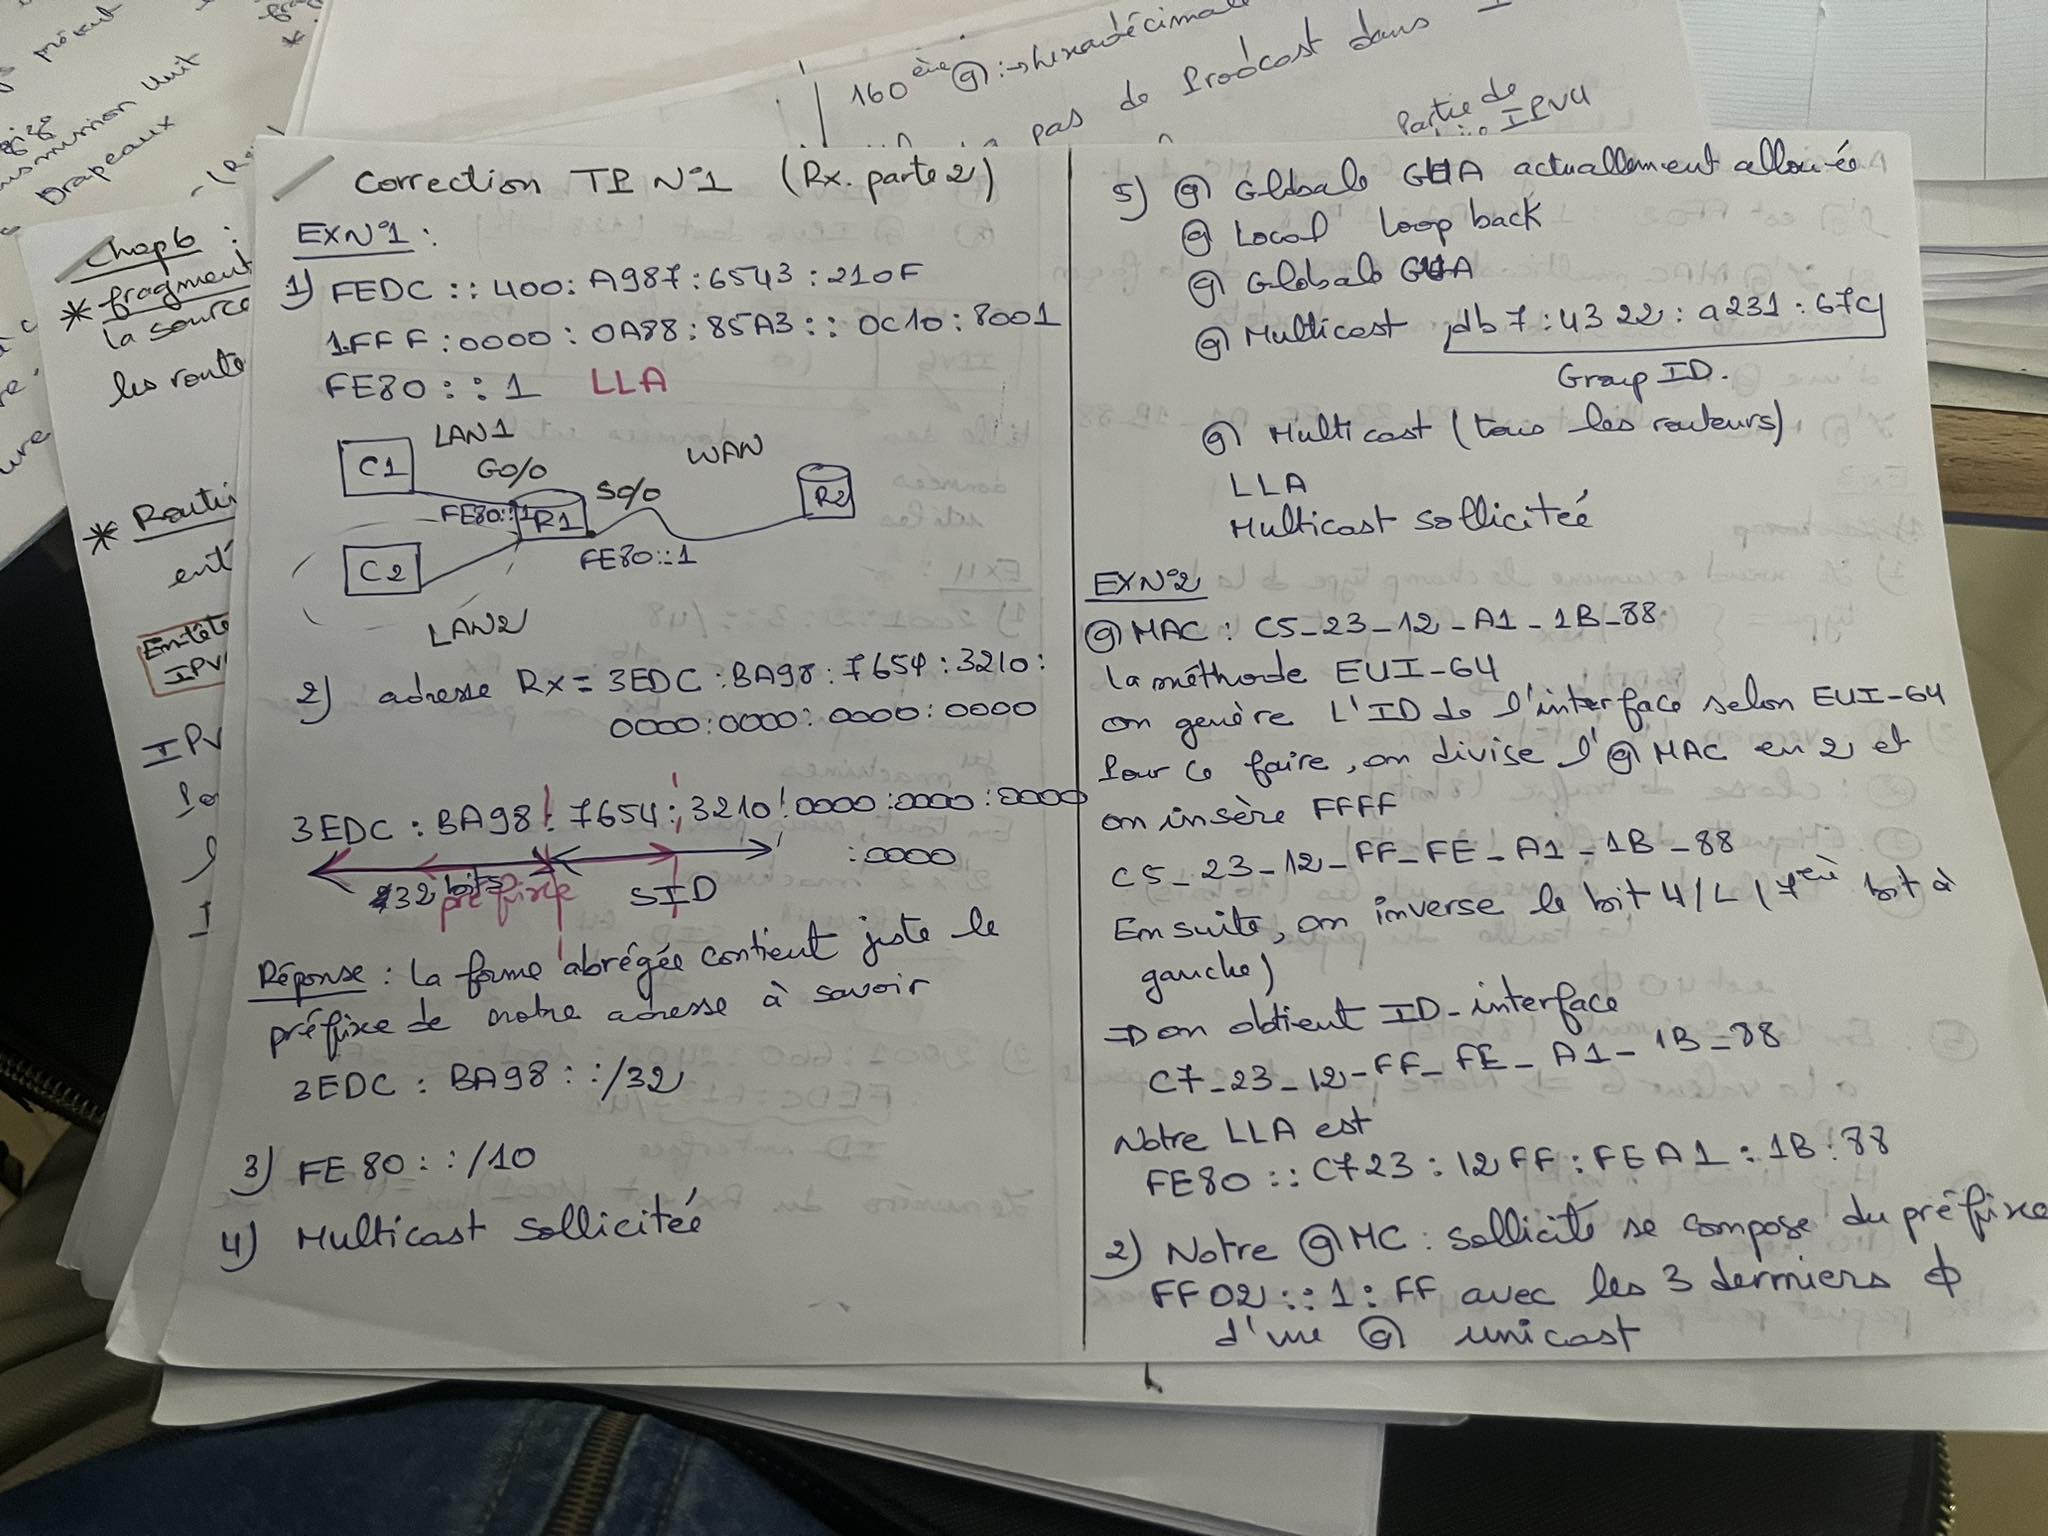 correction TP N°1 (Rx. parte 2)
EXN°1 :
1) FEDC :: 400 : A987 : 6543 : 210F
1FFF : 0000 : 0A88 : 85A3 :: 0C10 : 8001
FE80 :: 1 LLA
LAN1
C1
G0/0
WAN
S0/0
FE80::1
R1
R2
C2
FE80::1
LAN2
2) adresse Rx = 3EDC : BA98 : 7654 : 3210 :
0000 : 0000 : 0000 : 0000
3EDC : BA98 : 7654 : 3210 : 0000 : 0000 : 0000
: 0000
32 bits
préfixe
SID
Réponse : la forme abrégée contient juste le
préfixe de notre adresse à savoir
3EDC : BA98 :: /32
3) FE80 :: /10
4) Multicast sollicitée
5) @ Globale GUA actuallement allouée
@ Local loop back
@ Globale GUA
@ Multicast db7 : 4322 : a231 : 67C
Group ID.
@ Multicast (tous les routeurs)
LLA
Multicast sollicitée
EXN°2
@ MAC : C5_23_12_A1_1B_88
la méthode EUI-64
on genère L'ID de l'interface selon EUI-64
Pour ce faire, on divise l'@ MAC en 2 et
on insère FFFF
C5_23_12_FF_FE_A1_1B_88
Ensuite, on inverse le bit U/L (7 bit à
gauche)
⇒ on obtient ID-interface
C7_23_12_FF_FE_A1_1B_88
Notre LLA est
FE80 :: C723 : 12FF : FEA1 : 1B : 88
2) Notre @ MC : sollicité se compose du préfixe
FF02 :: 1 : FF avec les 3 derniers
d'une @ unicast
160 @ : → hexadécimale
pas de Prodcast dans I
Partie de
IPV4
Chap6 :
* fragment
la source
les route
* Routi
ent
Entête
IPV
Drapeaux